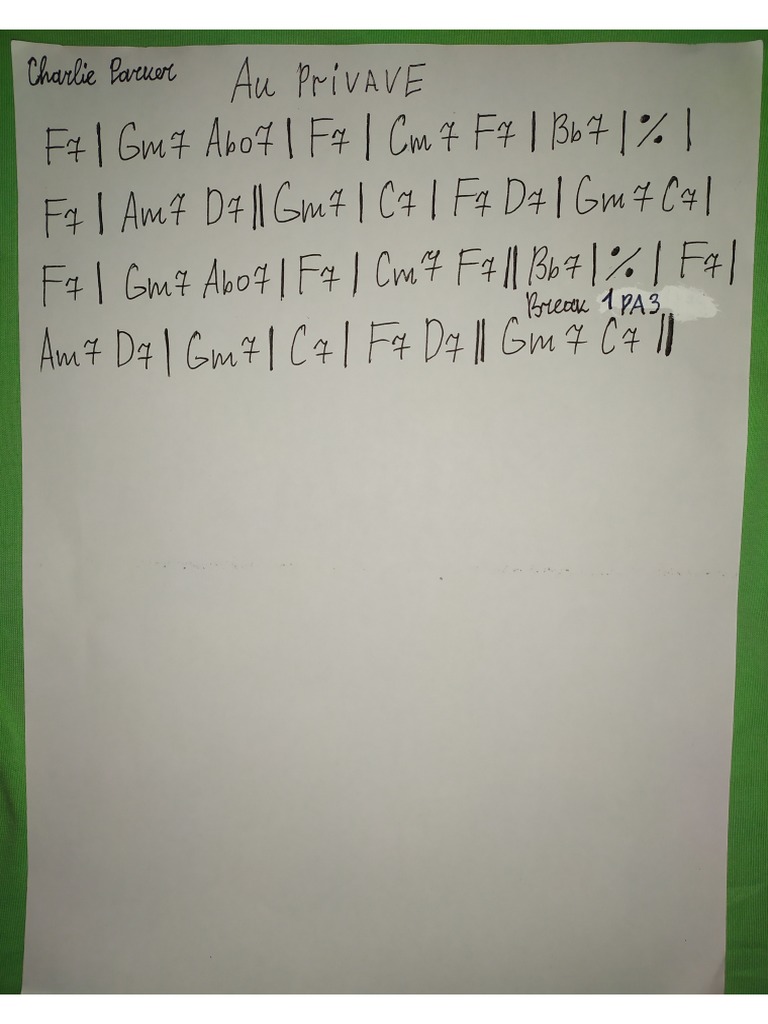 Charlie Parker Au PRiVAVE
F7 | Gm7 Abo7 | F7 | Cm7 F7 | Bb7 | % |
F7 | Am7 D7 || Gm7 | C7 | F7 D7 | Gm7 C7 |
F7 | Gm7 Abo7 | F7 | Cm7 F7 || Bb7 | % | F7 |
Break 1 РАЗ
Am7 D7 | Gm7 | C7 | F7 D7 || Gm7 C7 ||